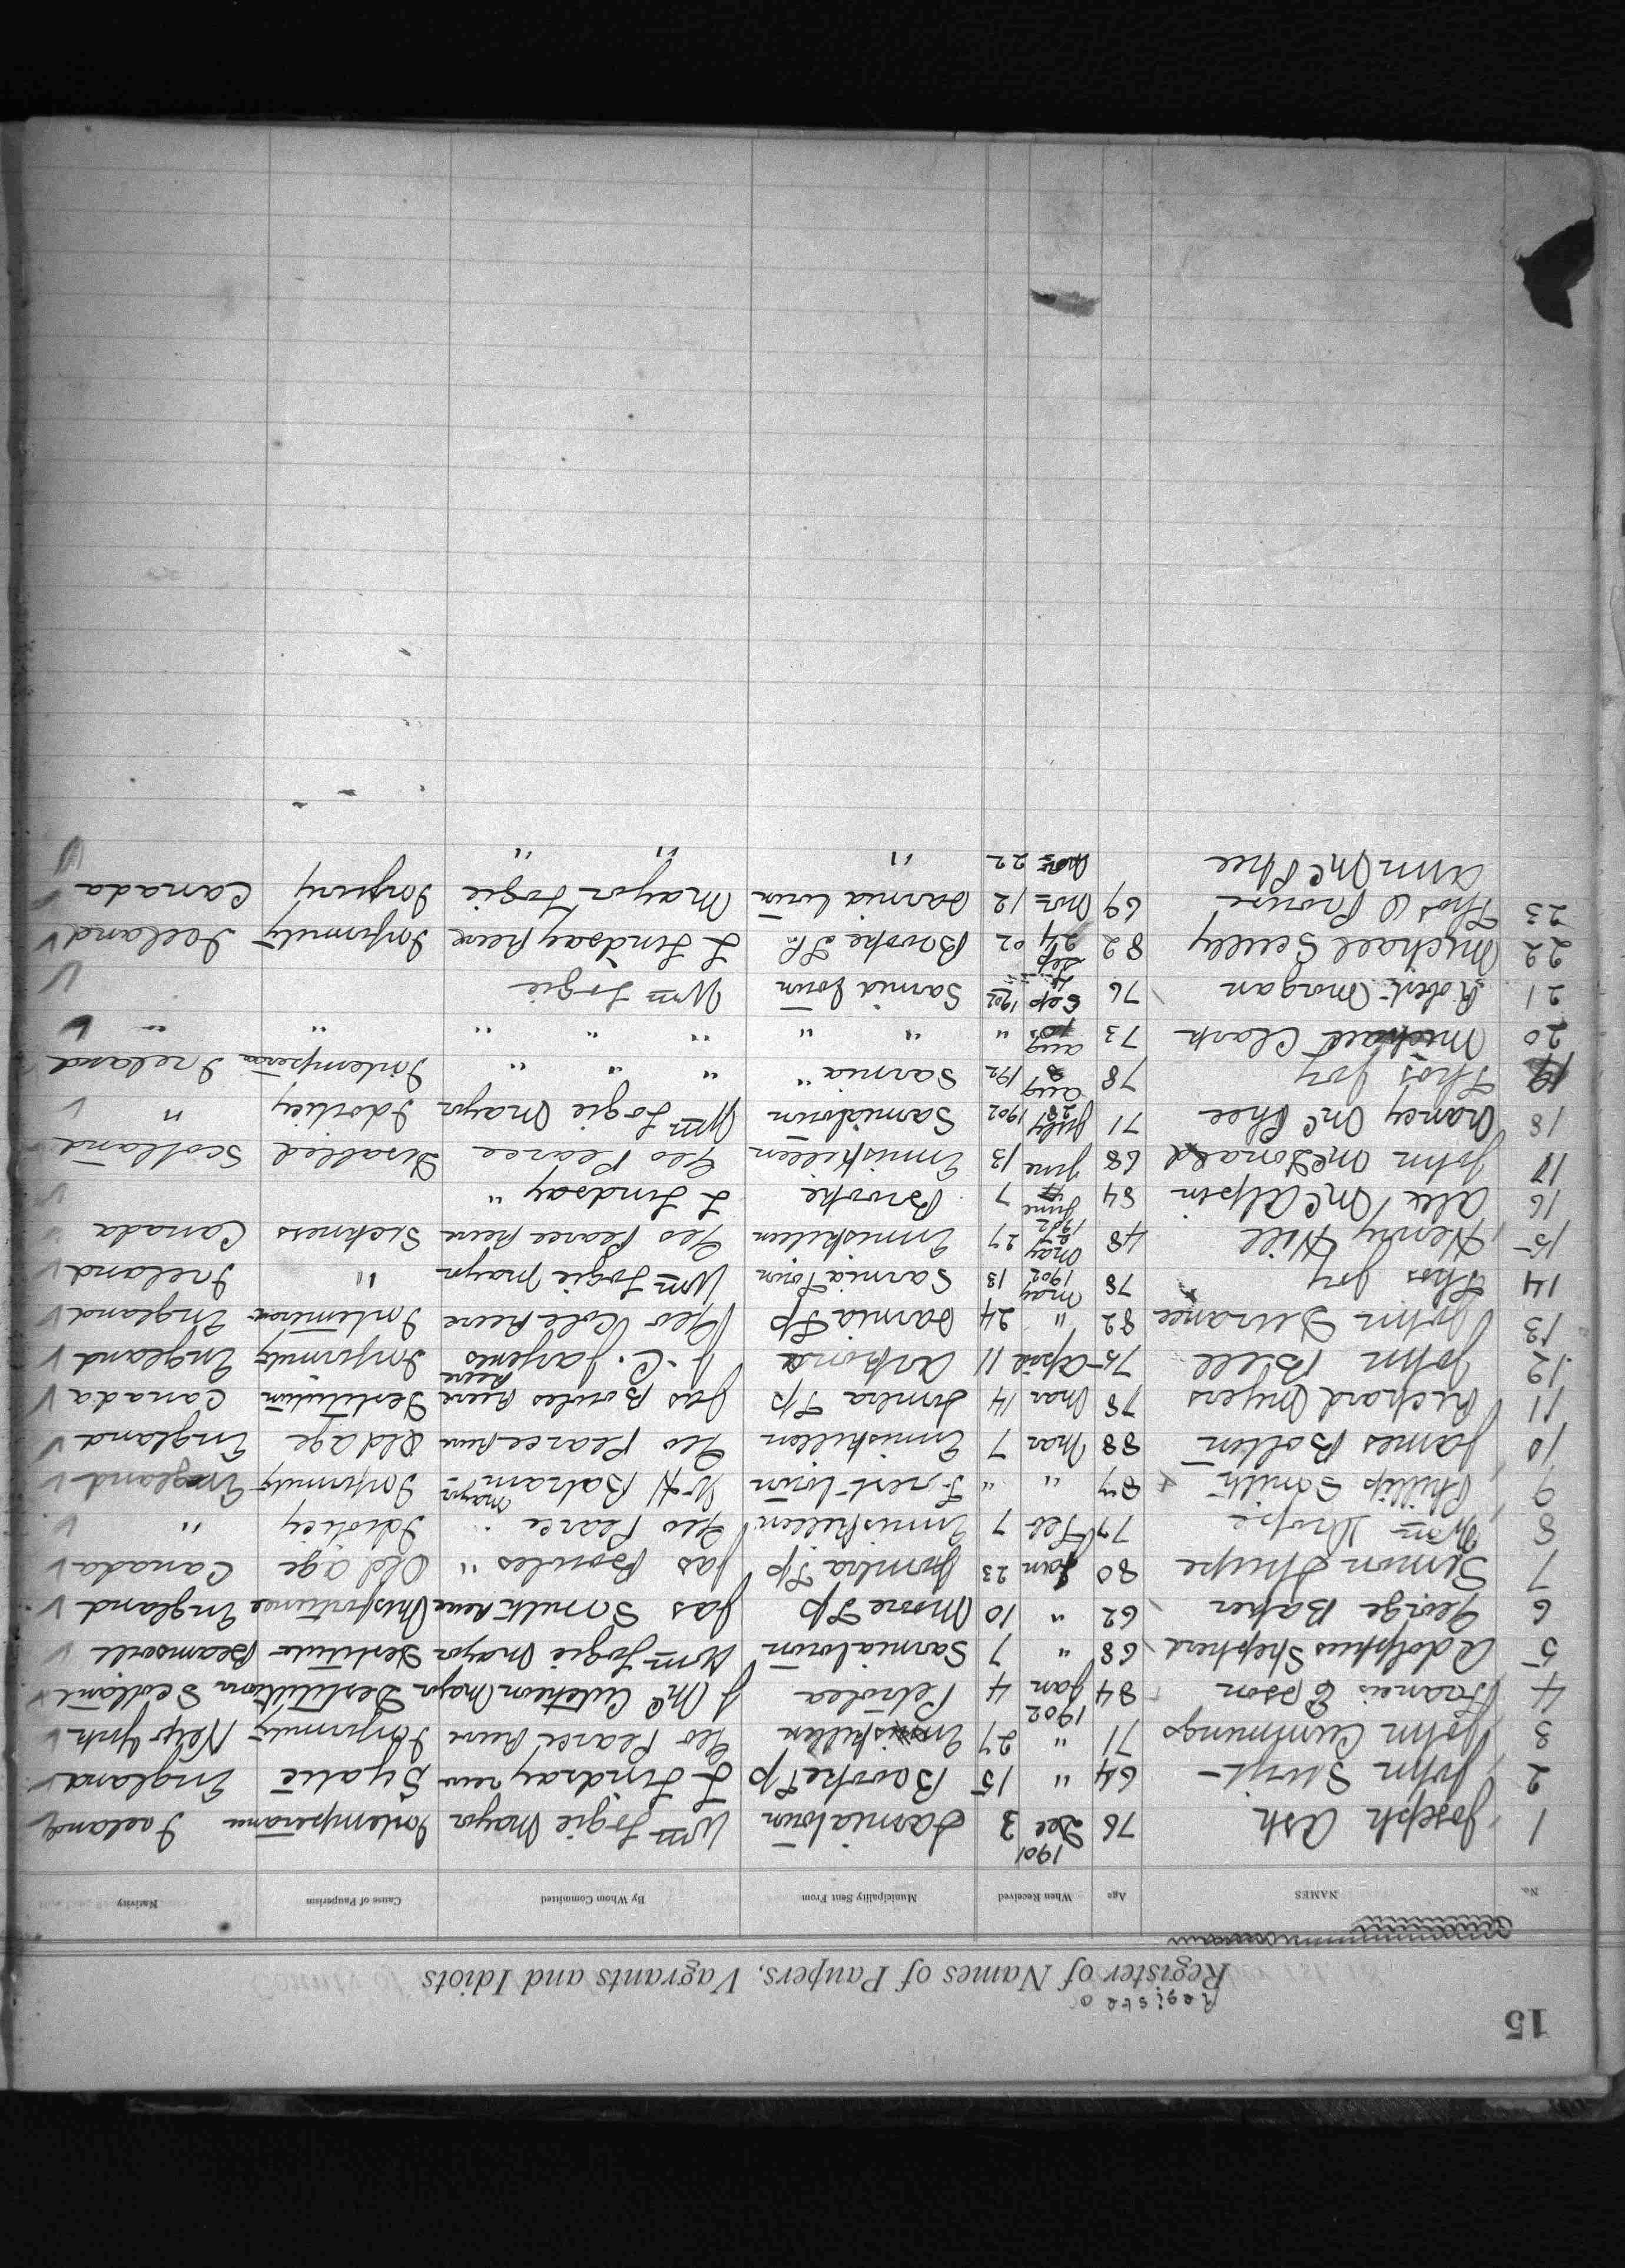 15
Register
Register of Names of Paupers, Vagrants and Idiots
No. NAMES Age When Received Municipality Sent From By Whom Committed Cause of Pauperism Nativity
1901
1 Joseph Ash 76 Dec 3 Sarnia town Wm Logie Mayor Intemperance Ireland
2 John Sluyt 64 " 15 Brooke Tp L Lindsay reeve England
3 John Cummings 71 " 27 Inniskillen Geo Pearce Reeve Infirmity New York
1902
4 Francis Epson 84 Jan 4 Petrolea J McCutcheon Mayor Destitution Scotland
5 Adolphus Shepherd 68 " 7 Sarnia town Wm Logie Mayor Destitute Beamsvill
6 George Baker 62 " 10 Moore Tp Jas Smith Reeve Misfortune England
7 Simon Shupe 80 Jan 23 Sombra Tp Jas Bowles " Old age Canada
8 Wm Shope 77 Feb 7 Inniskillen Geo Pearce " Idioticy "
9 Phillip Smith 87 " " Forest town W H Bartram Mayor Infirmity England
10 James Bolton 88 Mar 7 Inniskillen Geo Pearce Reeve Old age England
11 Richard Myers 78 Mar 14 Sombra Tp Jas Bowles Reeve Destitution Canada
12 John Bell 75 April 11 Arkona J. C. Reeve Infirmity England
13 John Durance 82 " 24 Sarnia Tp Geo Cole Reeve England
14 Thos Joy 78 May 1902 13 Sarnia Town Wm Logie Mayor " Ireland
15 Henry Hill 48 May 27 1902 27 Inniskillen Geo Pearce Reeve Sickness Canada
16 Alex McAlpin 84 June 7 Brooke L Lindsay "
17 John McDonald 68 June 13 Inniskillen Geo Pearce Disabled Scotland
18 Nancy McPhee 71 July 28 1902 Sarnia town Wm Logie Mayor Idioticy "
19 Thos Joy 78 Aug 8 192 Sarnia " " " " Intemperan Ireland
20 Michael Clark 73 Aug " " " " " " " "
21 Robert Magan 76 Sep 1902 Sarnia town Wm Logie
22 Michael Scully 82 Sep 24 02 Brooke Tp L Lindsay Reeve Infirmity Ireland
23 Thos O Prouse 69 Nov 12 Sarnia town Mayor Logie Injury Canada
Ann McPhee Nov 22 " " "